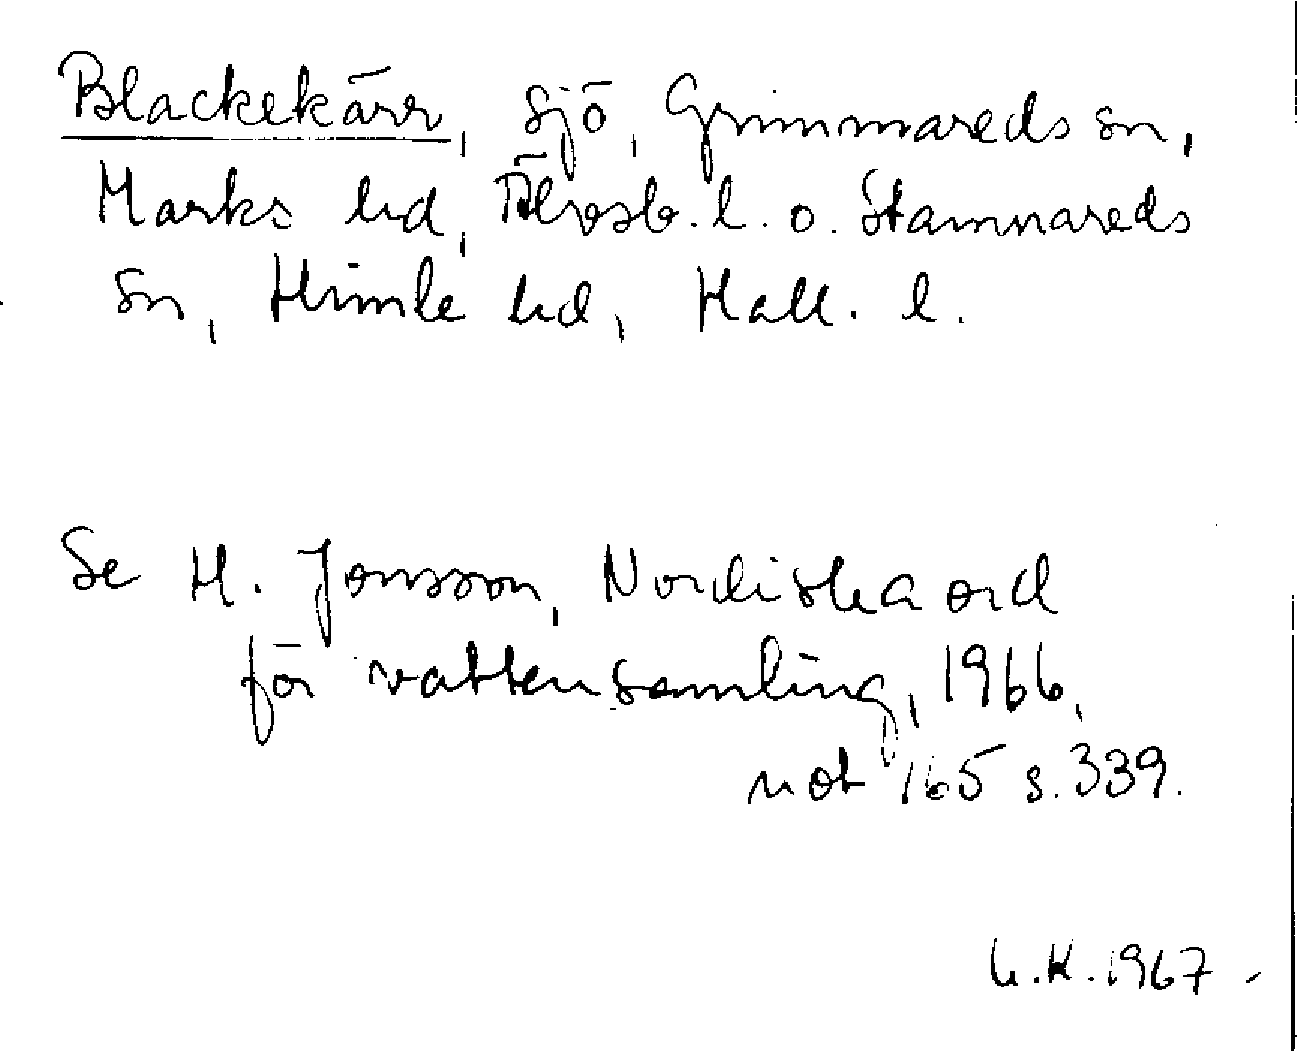 Blackekärr, sjö, Grimmareds sn,
Marks hd, Älvsb. l. o. Stamnareds
sn, Himle hd, Hall. l.
Se H. Jonsson, Nordiska ord
för vattensamling, 1966,
not 165 s. 339.
L.K. 1967